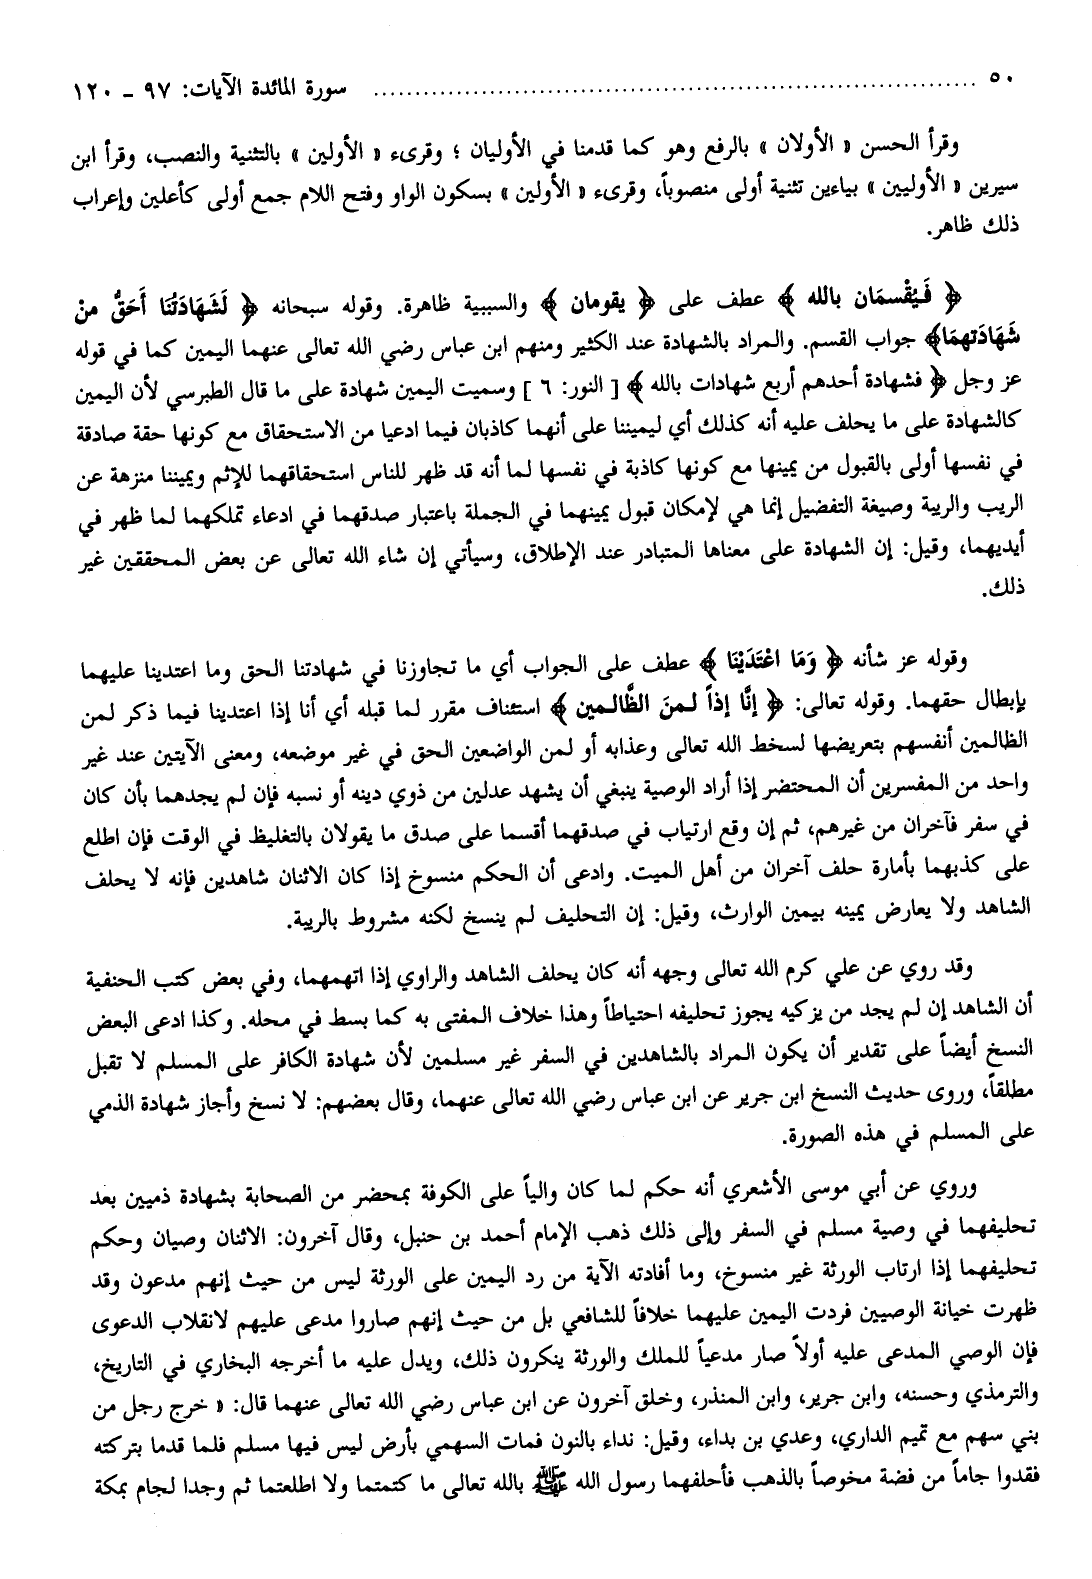 ٥٠ ........................................ سورة المائدة الآيات: ٩٧ ـ ١٢٠
وقرأ الحسن « الأولان » بالرفع وهو كما قدمنا في الأوليان ؛ وقرىء « الأولين » بالتثنية والنصب، وقرأ ابن
سيرين « الأوليين » بياءين تثنية أولى منصوباً، وقرىء « الأولين » بسكون الواو وفتح اللام جمع أولى كأعلين وإعراب
ذلك ظاهر.
﴿ فَيُقْسمَان بالله ﴾ عطف على ﴿ يقومان ﴾ والسببية ظاهرة. وقوله سبحانه ﴿ لَشَهَادَتُنَا أَحَقُّ منْ
شَهَادَتهمَا﴾ جواب القسم. والمراد بالشهادة عند الكثير ومنهم ابن عباس رضي الله تعالى عنهما اليمين كما في قوله
عز وجل ﴿ فشهادة أحدهم أربع شهادات بالله ﴾ [ النور: ٦ ] وسميت اليمين شهادة على ما قال الطبرسي لأن اليمين
كالشهادة على ما يحلف عليه أنه كذلك أي ليميننا على أنهما كاذبان فيما ادعيا من الاستحقاق مع كونها حقة صادقة
في نفسها أولى بالقبول من يمينها مع كونها كاذبة في نفسها لما أنه قد ظهر للناس استحقاقهما للإثم ويميننا منزهة عن
الريب والريبة وصيغة التفضيل إنما هي لإمكان قبول يمينهما في الجملة باعتبار صدقهما في ادعاء تملكهما لما ظهر في
أيديهما، وقيل: إن الشهادة على معناها المتبادر عند الإطلاق، وسيأتي إن شاء الله تعالى عن بعض المحققين غير
ذلك.
وقوله عز شأنه ﴿ وَمَا اعْتَدَيْنَا ﴾ عطف على الجواب أي ما تجاوزنا في شهادتنا الحق وما اعتدينا عليهما
بإبطال حقهما. وقوله تعالى: ﴿ إنَّا إذاً لـمنَ الظَّالـمين ﴾ استئناف مقرر لما قبله أي أنا إذا اعتدينا فيما ذكر لمن
الظالمين أنفسهم بتعريضها لسخط الله تعالى وعذابه أو لمن الواضعين الحق في غير موضعه، ومعنى الآيتين عند غير
واحد من المفسرين أن المحتضر إذا أراد الوصية ينبغي أن يشهد عدلين من ذوي دينه أو نسبه فإن لم يجدهما بأن كان
في سفر فآخران من غيرهم، ثم إن وقع ارتياب في صدقهما أقسما على صدق ما يقولان بالتغليظ في الوقت فإن اطلع
على كذبهما بأمارة حلف آخران من أهل الميت. وادعى أن الحكم منسوخ إذا كان الاثنان شاهدين فإنه لا يحلف
الشاهد ولا يعارض يمينه بيمين الوارث، وقيل: إن التحليف لم ينسخ لكنه مشروط بالريبة.
وقد روي عن علي كرم الله تعالى وجهه أنه كان يحلف الشاهد والراوي إذا اتهمهما، وفي بعض كتب الحنفية
أن الشاهد إن لم يجد من يزكيه يجوز تحليفه احتياطاً وهذا خلاف المفتى به كما بسط في محله. وكذا ادعى البعض
النسخ أيضاً على تقدير أن يكون المراد بالشاهدين في السفر غير مسلمين لأن شهادة الكافر على المسلم لا تقبل
مطلقاً، وروى حديث النسخ ابن جرير عن ابن عباس رضي الله تعالى عنهما، وقال بعضهم: لا نسخ وأجاز شهادة الذمي
على المسلم في هذه الصورة.
وروي عن أبي موسى الأشعري أنه حكم لما كان والياً على الكوفة بمحضر من الصحابة بشهادة ذميين بعد
تحليفهما في وصية مسلم في السفر وإلى ذلك ذهب الإمام أحمد بن حنبل، وقال آخرون: الاثنان وصيان وحكم
تحليفهما إذا ارتاب الورثة غير منسوخ، وما أفادته الآية من رد اليمين على الورثة ليس من حيث إنهم مدعون وقد
ظهرت خيانة الوصيين فردت اليمين عليهما خلافاً للشافعي بل من حيث إنهم صاروا مدعى عليهم لانقلاب الدعوى
فإن الوصي المدعى عليه أولاً صار مدعياً للملك والورثة ينكرون ذلك، ويدل عليه ما أخرجه البخاري في التاريخ،
والترمذي وحسنه، وابن جرير، وابن المنذر، وخلق آخرون عن ابن عباس رضي الله تعالى عنهما قال: « خرج رجل من
بني سهم مع تميم الداري، وعدي بن بداء، وقيل: نداء بالنون فمات السهمي بأرض ليس فيها مسلم فلما قدما بتركته
فقدوا جاماً من فضة مخوصاً بالذهب فأحلفهما رسول الله ﷺ بالله تعالى ما كتمتما ولا اطلعتما ثم وجدا لجام بمكة